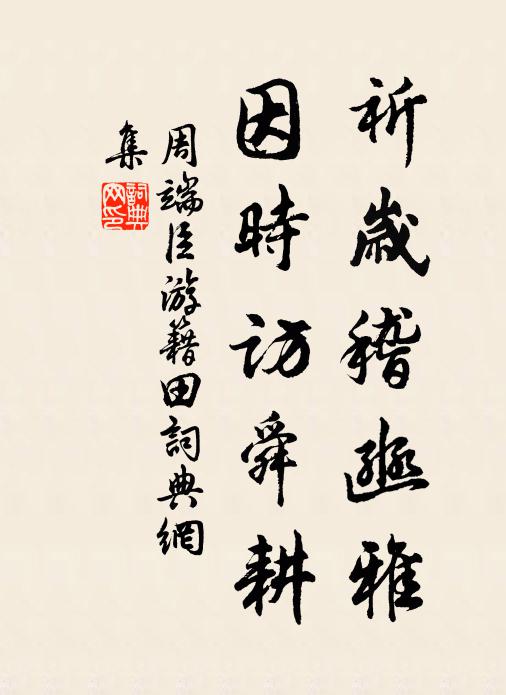 祈歲稽豳雅
因時訪舜耕
周端臣游籍田詞典網
集
詞典
网印